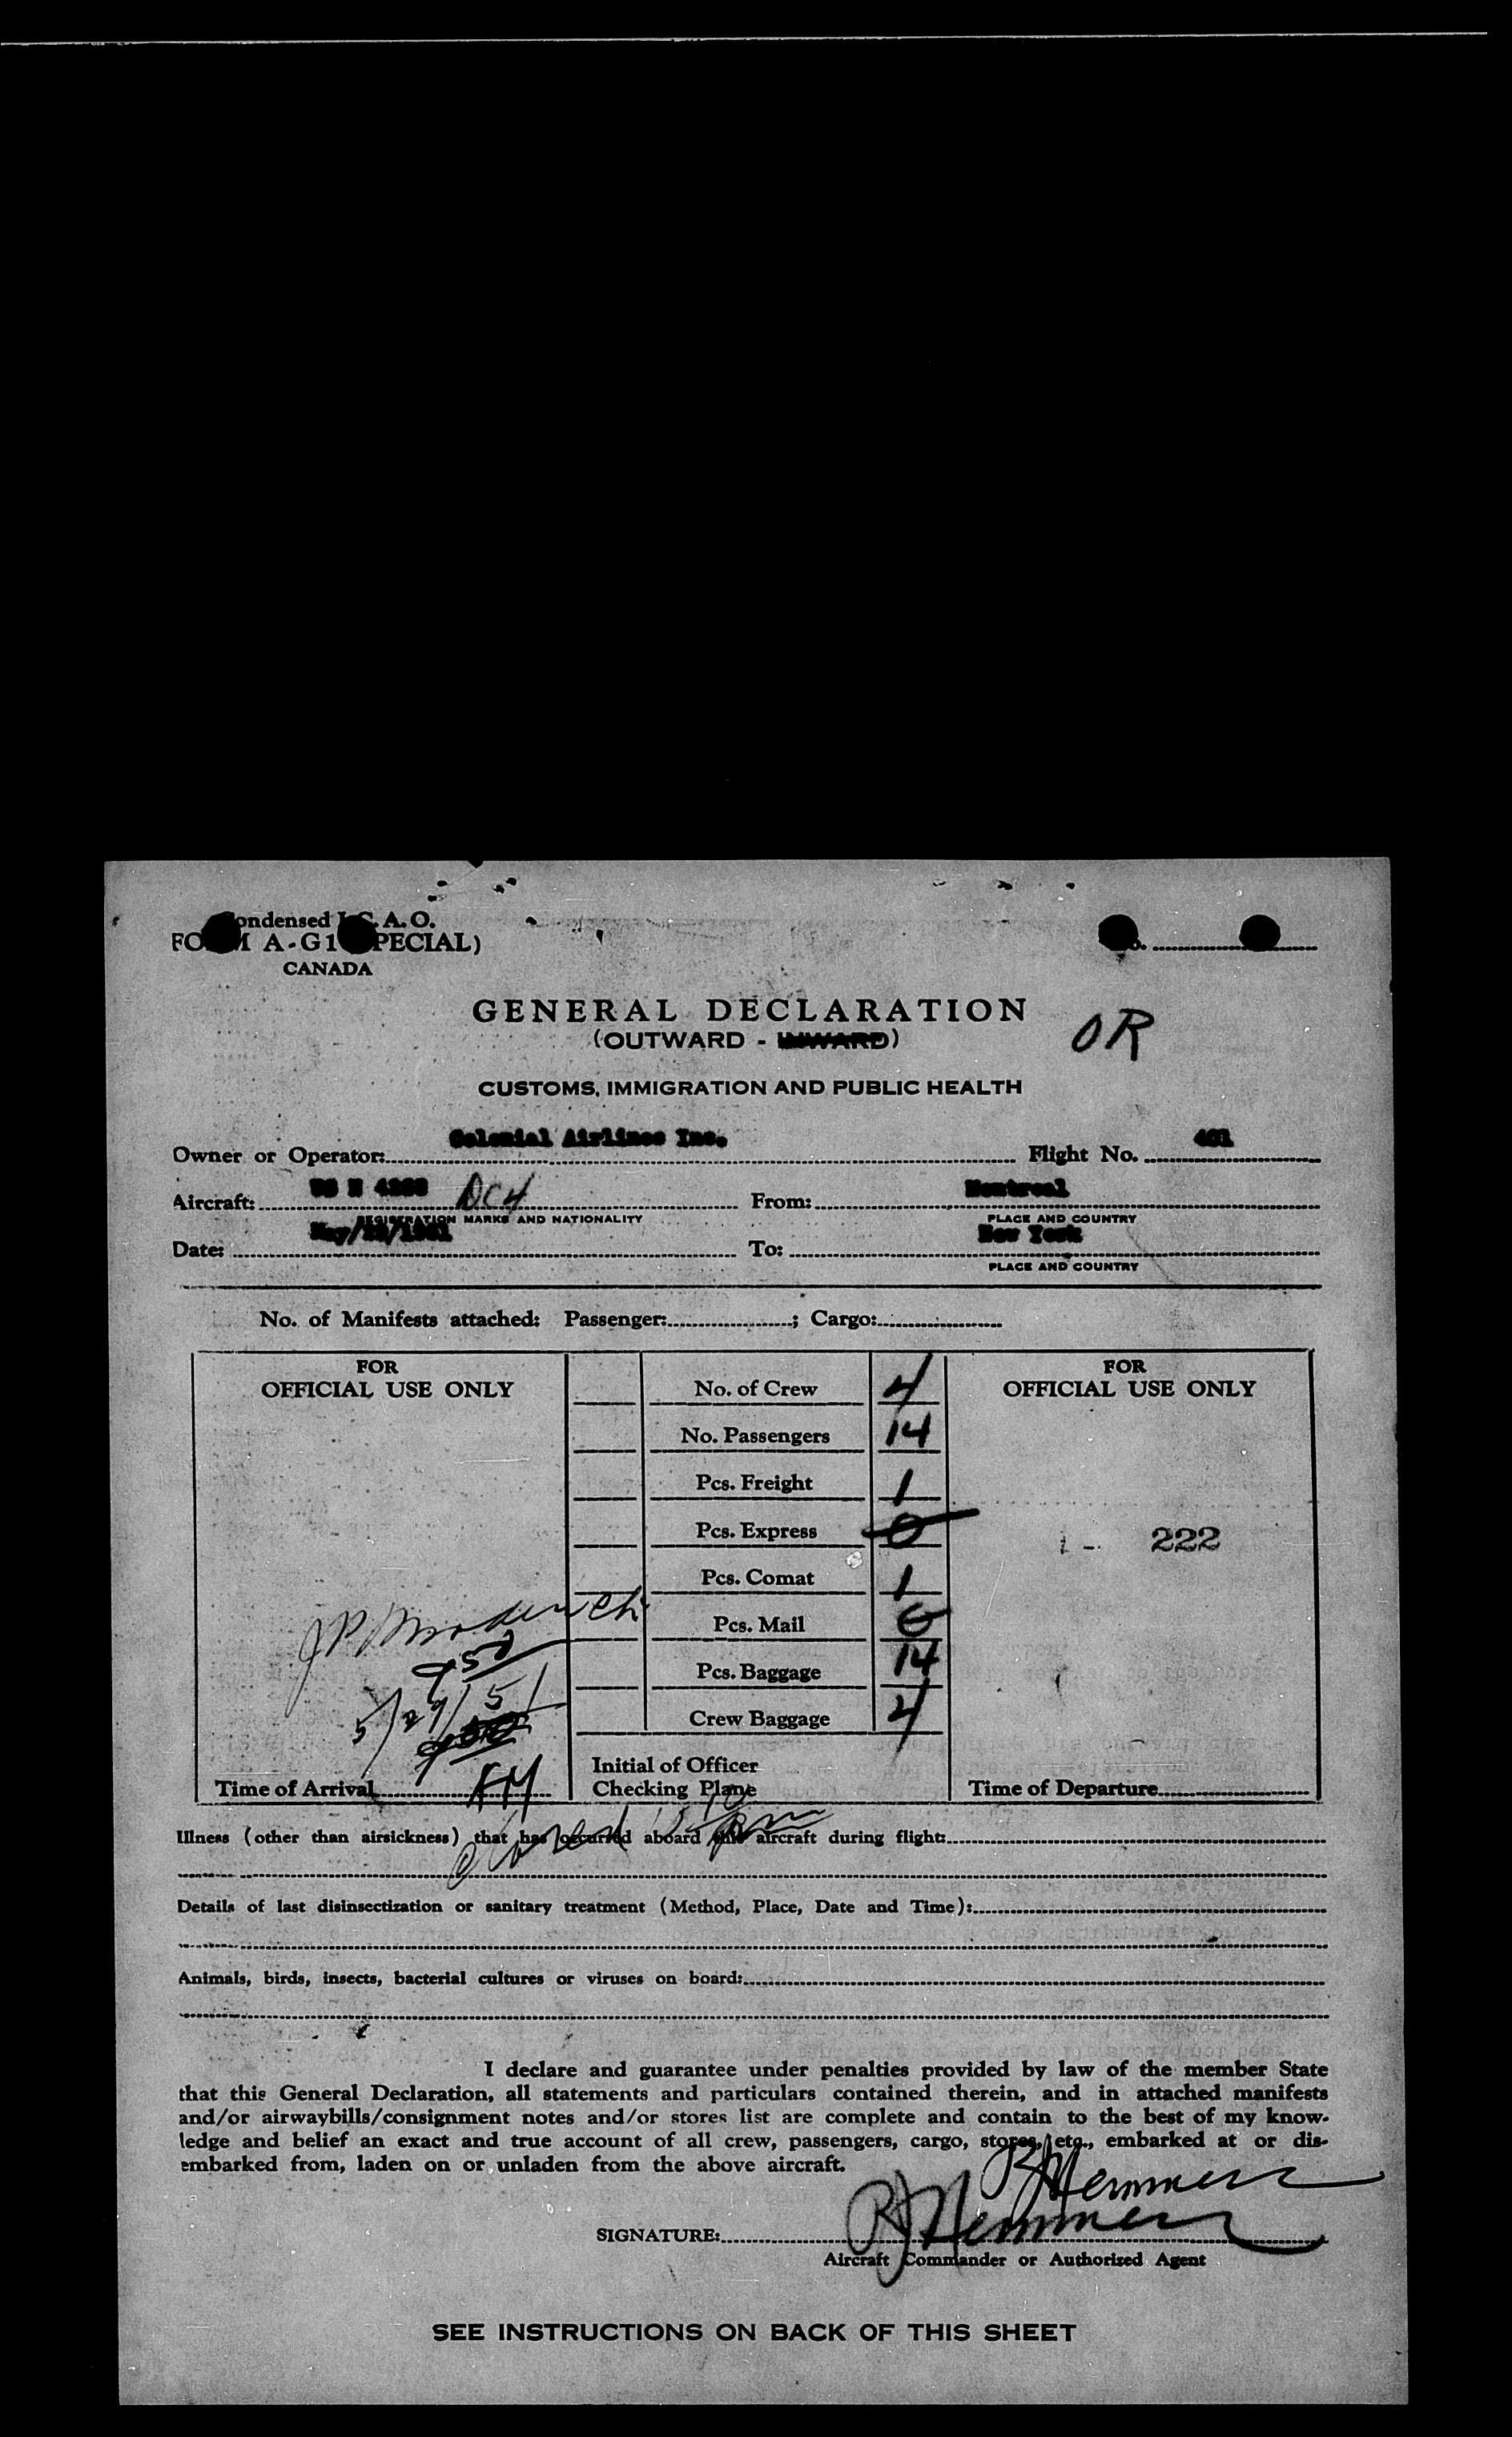 Condensed I.C.A.O.
FORM A-G1 (SPECIAL)
CANADA
GENERAL DECLARATION
(OUTWARD - INWARD)
OR
CUSTOMS, IMMIGRATION AND PUBLIC HEALTH
Owner or Operator: Colonial Airlines Inc. Flight No. 461
Aircraft: US N DC4 From: Montreal
REGISTRATION MARKS AND NATIONALITY PLACE AND COUNTRY
Date: May/ /1951 To: New York
PLACE AND COUNTRY
No. of Manifests attached: Passenger: ; Cargo:
FOR
OFFICIAL USE ONLY
No. of Crew 4
No. Passengers 14
Pcs. Freight 1
Pcs. Express 0
Pcs. Comat 1
Pcs. Mail 0
Pcs. Baggage 14
Crew Baggage 4
Initial of Officer
Checking Plane
FOR
OFFICIAL USE ONLY
222
950
5/29/51
Time of Arrival
Time of Departure
Illness (other than airsickness) that has occurred aboard this aircraft during flight:
Details of last disinsectization or sanitary treatment (Method, Place, Date and Time):
Animals, birds, insects, bacterial cultures or viruses on board:
I declare and guarantee under penalties provided by law of the member State
that this General Declaration, all statements and particulars contained therein, and in attached manifests
and/or airwaybills/consignment notes and/or stores list are complete and contain to the best of my know-
ledge and belief an exact and true account of all crew, passengers, cargo, stores, etc., embarked at or dis-
embarked from, laden on or unladen from the above aircraft.
SIGNATURE:
Aircraft Commander or Authorized Agent
SEE INSTRUCTIONS ON BACK OF THIS SHEET